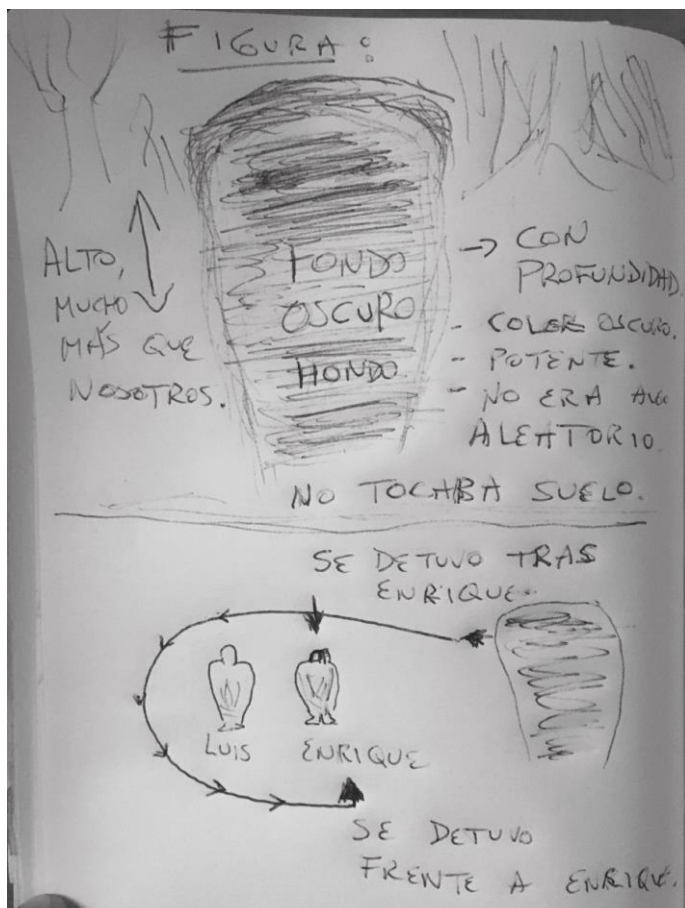 FIGURA:
ALTO,
MUCHO
MÁS QUE
NOSOTROS.
FONDO
OSCURO
HONDO
→ CON
PROFUNDIDAD.
- COLOR OSCURO.
- POTENTE.
- NO ERA ALGO
ALEATORIO.
NO TOCABA SUELO.
SE DETUVO TRAS
ENRIQUE.
LUIS
ENRIQUE
SE DETUVO
FRENTE A ENRIQUE.